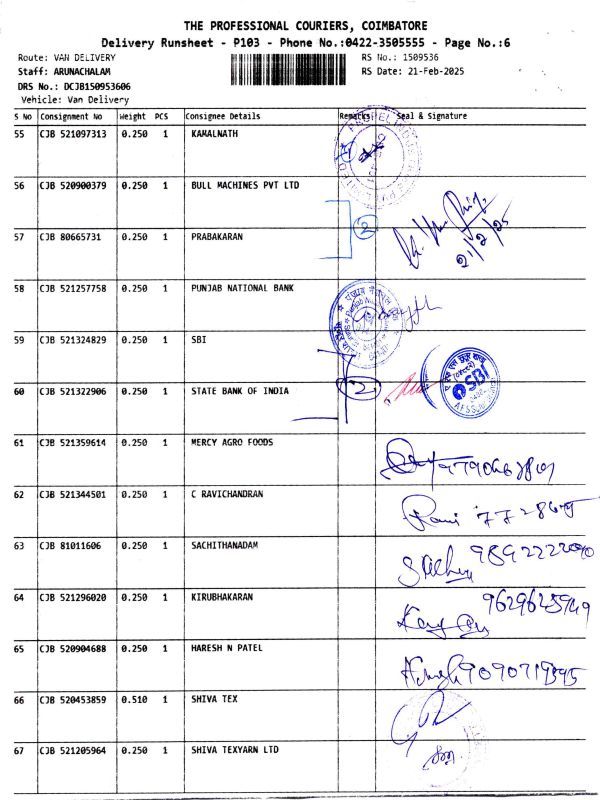 THE PROFESSIONAL COURIERS, COIMBATORE
Delivery Runsheet - P103 - Phone No.:0422-3505555 - Page No.:6
Route: VAN DELIVERY
RS No.: 1509536
Staff: ARUNACHALAM
RS Date: 21-Feb-2025
DRS No.: DCJB150953606
Vehicle: Van Delivery
S No Consignment No Weight PCS Consignee Details Remarks Seal & Signature
55 CJB 521097313 0.250 1 KAMALNATH
56 CJB 520900379 0.250 1 BULL MACHINES PVT LTD
2
21/2/25
57 CJB 80665731 0.250 1 PRABAKARAN
58 CJB 521257758 0.250 1 PUNJAB NATIONAL BANK
59 CJB 521324829 0.250 1 SBI
60 CJB 521322906 0.250 1 STATE BANK OF INDIA
2
SBI
61 CJB 521359614 0.250 1 MERCY AGRO FOODS
62 CJB 521344501 0.250 1 C RAVICHANDRAN
Ravi
63 CJB 81011606 0.250 1 SACHITHANADAM
64 CJB 521296020 0.250 1 KIRUBHAKARAN
65 CJB 520904688 0.250 1 HARESH N PATEL
66 CJB 520453859 0.510 1 SHIVA TEX
67 CJB 521205964 0.250 1 SHIVA TEXYARN LTD